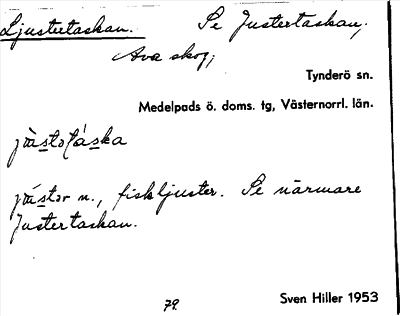 Ljustertaskan. Se Justertaskan,
Ava skog,
Tynderö sn.
Medelpads ö. doms. tg, Västernorrl. län.
jùstətáska
fiskljuster. Se närmare
Justertaskan.
79.
Sven Hiller 1953